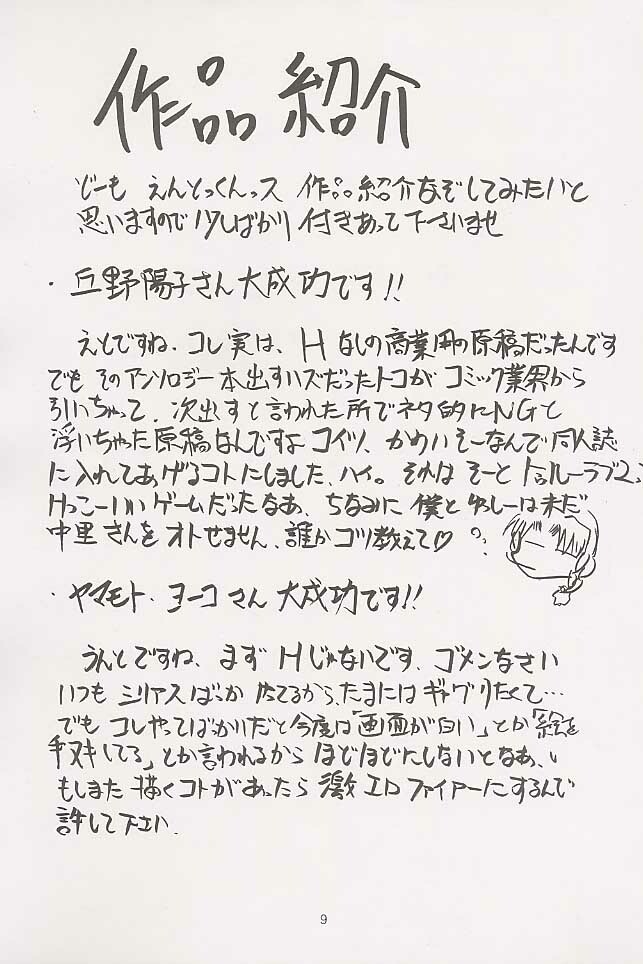 作品紹介
どーも えんとっくんっス 作品紹介なぞしてみたいと
思いますので少しばかり付きあって下さいませ
・丘野陽子さん大成功です!!
えとですね、コレ実は、Hなしの商業用の原稿だったんです
でも そのアンソロジー本出すハズだったトコが コミック業界から
引いちゃって、次出すと言われた所でネタ的にNGと
浮いちゃった原稿なんですよ コイツ、かわいそーなんで同人誌
に入れてあげるコトにしました、ハイ。それはそーと トゥルーラブ2、
けっこーいい ゲームだったなあ、ちなみに 僕と ゆしーは未だ
中里さんを オトせません、誰かコツ教えて♡
・ヤマモト・ヨーコさん 大成功です!!
うんとですね、まず Hじゃないです、ゴメンなさい
いつも シリアスばっか だから、たまには ギャグりたくて…
でも コレやってばっかいだと今度は「画面が白い」とか「絵を
手ヌキしてる」とか言われるから ほどほどにしないとなあ、
もしまた 描くコトがあったら 激エロファイアーにするんで
許して下さい、
9